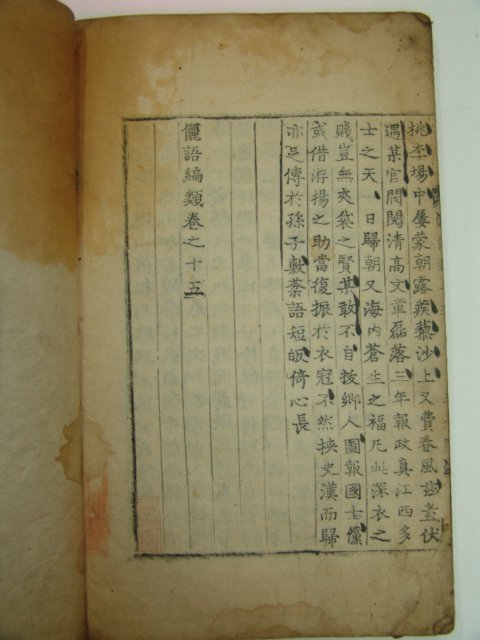 桃李場中屢蒙朝露蒺藜沙上又費春風玆盖伏
遇某官閥閱清高文章磊落三年報政真江西多
士之天一日歸朝又海內蒼生之福凡此深衣之
賤豈無夾袋之賢某敢不自拔鄉人圖報國士儻
或借游揚之助當復振於衣冠不然挾史漢而歸
亦足傳於孫子敷蘂語短皈倚心長
儷語編類卷之十五